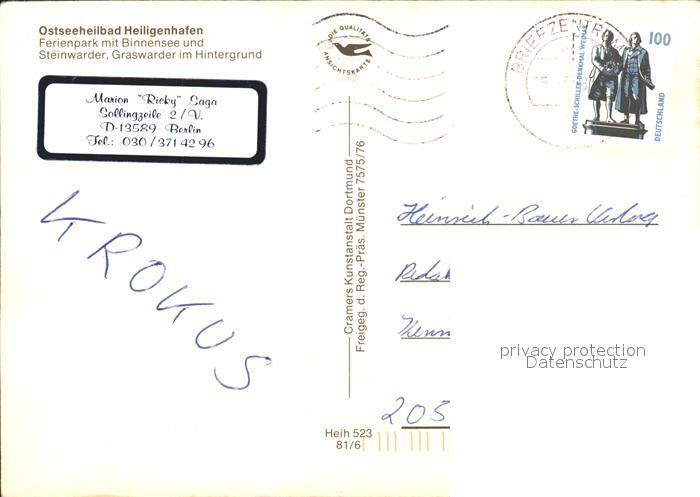 Ostseeheilbad Heiligenhafen
Ferienpark mit Binnensee und
Steinwarder, Graswarder im Hintergrund
Marion "Ricky" Saga
Sollingzeile 2/V.
D-13589 Berlin
Tel.: 030/371 42 96
KROKUS
DIE QUALITÄTS
ANSICHTSKARTE
Cramers Kunstanstalt Dortmund
Freigeg. d. Reg.-Präs. Münster 7575/76
Heih 523
81/6
BRIEFZENTRUM
100
GOETHE-SCHILLER-DENKMAL WEIMAR
DEUTSCHLAND
Heinrich-Bauer Verlag
Redak
205
privacy protection
Datenschutz